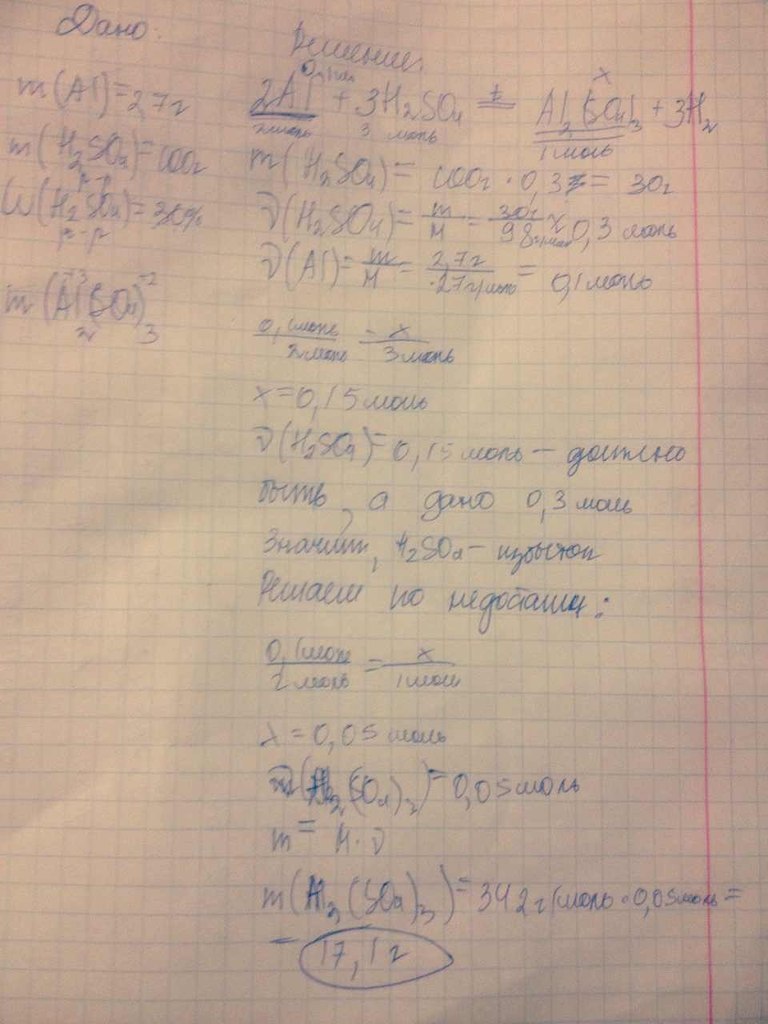 Дано:
m(Al)=2,7г
m(H₂SO₄)=100г
р-р
W(H₂SO₄)=30%
р-р
m(Al₂(SO₄)₃)
+3 -2
Решение:
0,1моль x
2Al + 3H₂SO₄ = Al₂(SO₄)₃ + 3H₂
t
2моль 3 моль 1моль
m(H₂SO₄) = 100г · 0,3 = 30г
ν(H₂SO₄) = m/M = 30г/98г/моль ≈ 0,3 моль
ν(Al) = m/M = 2,7г/27г/моль = 0,1моль
0,1моль/2моль = x/3моль
x=0,15моль
ν(H₂SO₄)=0,15моль – должно
быть, а дано 0,3 моль
Значит, H₂SO₄ – избыток
Решаем по недостатку:
0,1моль/2моль = x/1моль
x = 0,05 моль
ν(Al₂(SO₄)₂) = 0,05моль
m = M · ν
m(Al₂(SO₄)₃) = 342г/моль · 0,05моль =
= 17,1г